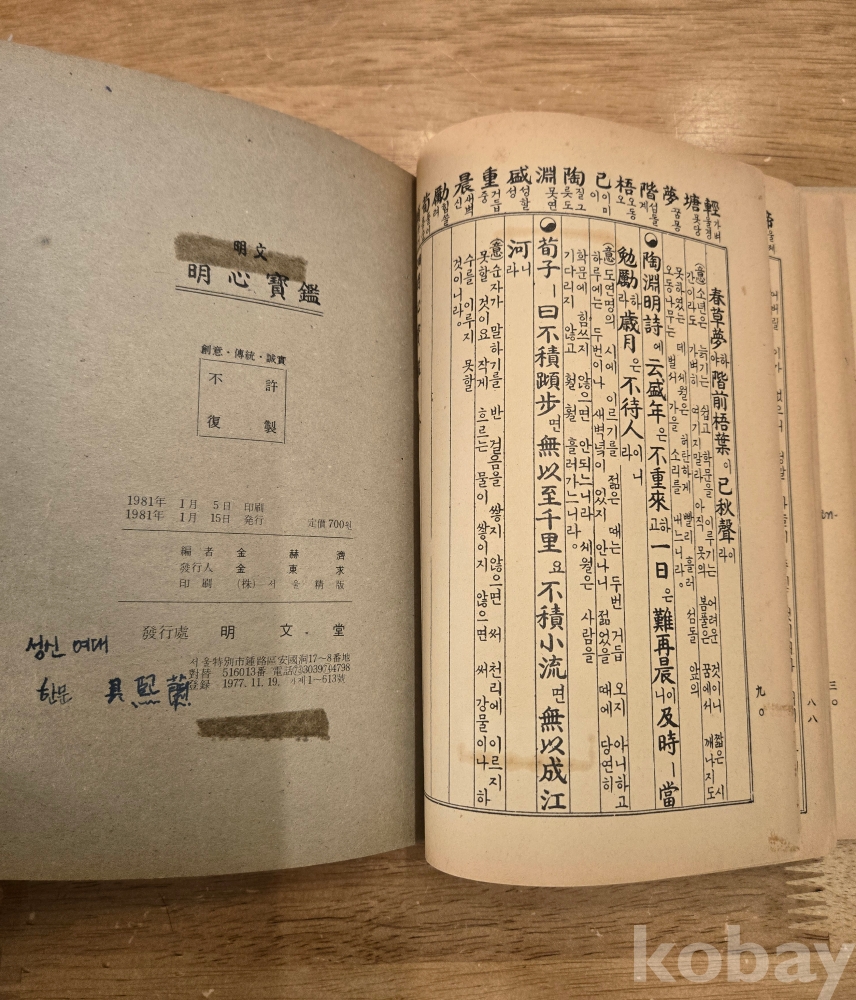 明文
明心寶鑑
創意·傳統·誠實
不許
復製
1981年 1月 5日 印刷
1981年 1月 15日 発行 定價 700원
編者 金赫濟
發行人 金東求
印刷 (株) 서울精版
發行處 明文堂
서울特別市鍾路區安國洞17~8番地
對替 516013番 電話
登錄 1977. 11. 19. 第1~613號
성신 여대
輕 가벼울경
塘 못당
夢 꿈몽
階 섬돌계
梧 오동오
已 이미이
陶 질그릇도
淵 못연
盛 성할성
重 거듭중
晨 새벽신
勵 힘쓸려
春草夢하야 階前梧葉이 已秋聲이라
(意) 소년은 늙기는 쉽고 학문을 이루기는 어려운 것이니 짧은 시
간이라도 가벼히 여기지말라 아직 못의 봄풀은 꿈에서 깨나지도
못하였는데 세월은 허탄하게 빨리 흘러 섬돌 앞의
오동나무는 벌써 가을 소리를 내느니라。
陶淵明詩에 云盛年은 不重來하고 一日은 難再晨이니 及時ㅣ當
勉勵하라 歲月은 不待人이니라
(意) 도연명의 시에 이르기를 젊은 때는 두번 거듭 오지 아니하고
하루에는 두번이나 새벽녘이 있지 안나니 젊었을 때에 당연히
학문에 힘쓰지 않으면 안되느니라 세월은 사람을
기다리지 않고 훨훨 흘러가느니라。
荀子ㅣ曰 不積蹞步면 無以至千里요 不積小流면 無以成江
河니라
(意) 순자가 말하기를 반 걸음을 쌓지 않으면 써 천리에 이르지
못할 것이요 작게 흐르는 물이 쌓이지 않으면 써 강물이나 하
수를 이루지 못할
것이니라。
九〇
八八
三〇
kobay